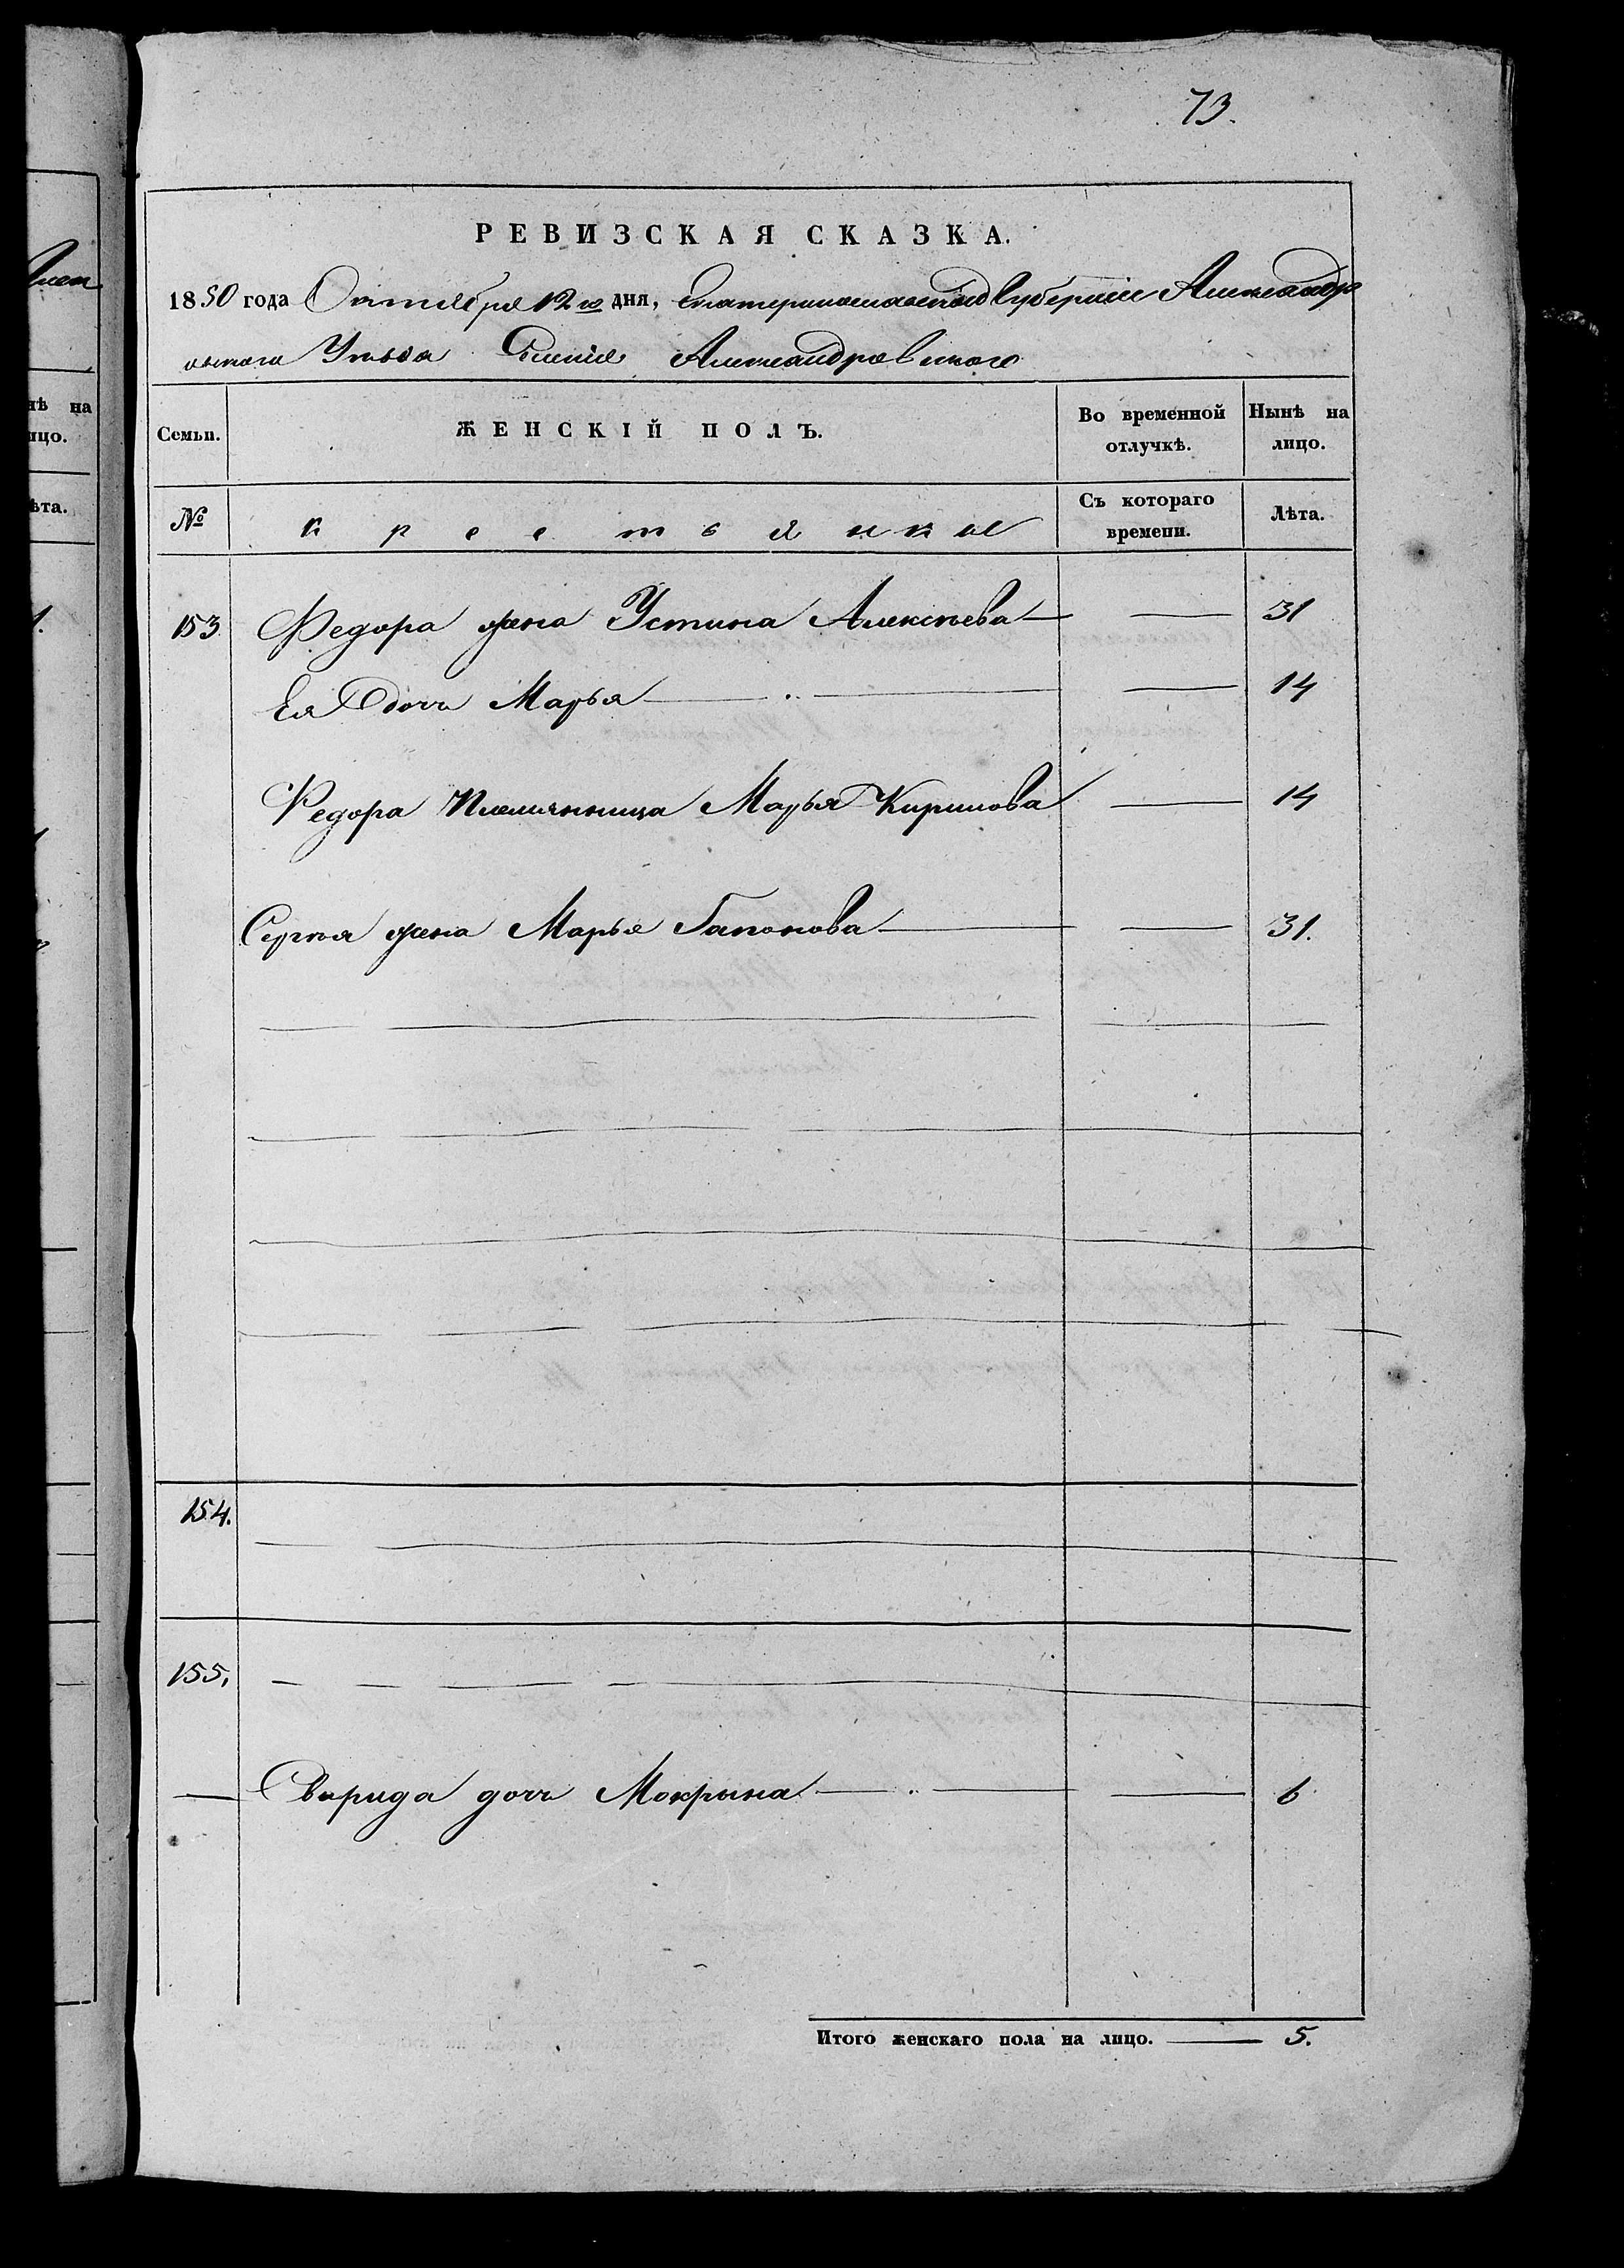 73.
РЕВИЗСКАЯ СКАЗКА.
1850 года Октября 12го дня, Екатеринославской Губернии Александро
вского Уезда Селения Александровского
Семьи. ЖЕНСКІЙ ПОЛЪ. Во временной отлучкѣ. Нынѣ на лицо.
№ крестьянки Съ котораго времени. Лѣта.
153. Федора жена Устина Алексѣева — — 31
Ея дочь Марья — — 14
Федора племянница Марья Кирилова — 14
Сергѣя жена Марья Гапонова — — 31.
154.
155.
— Свирида дочь Мокрына — — 6
Итого женскаго пола на лицо. — 5.
нѣ на
лицо.
Лѣта.
1.